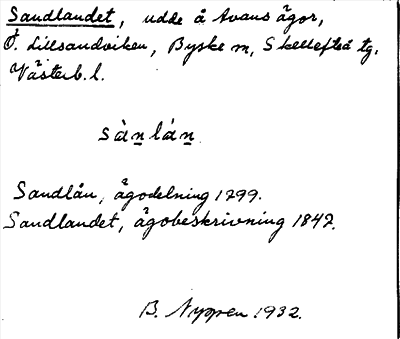 Sandlandet, udde å Avans ägor,
Ö. Lillsandviken, Byske sn, Skellefteå tg.
Västerb. l.
sàn̲lán̲
Sandlån, ägodelning 1799.
Sandlandet, ägobeskrivning 1842.
B. Nygren 1932.